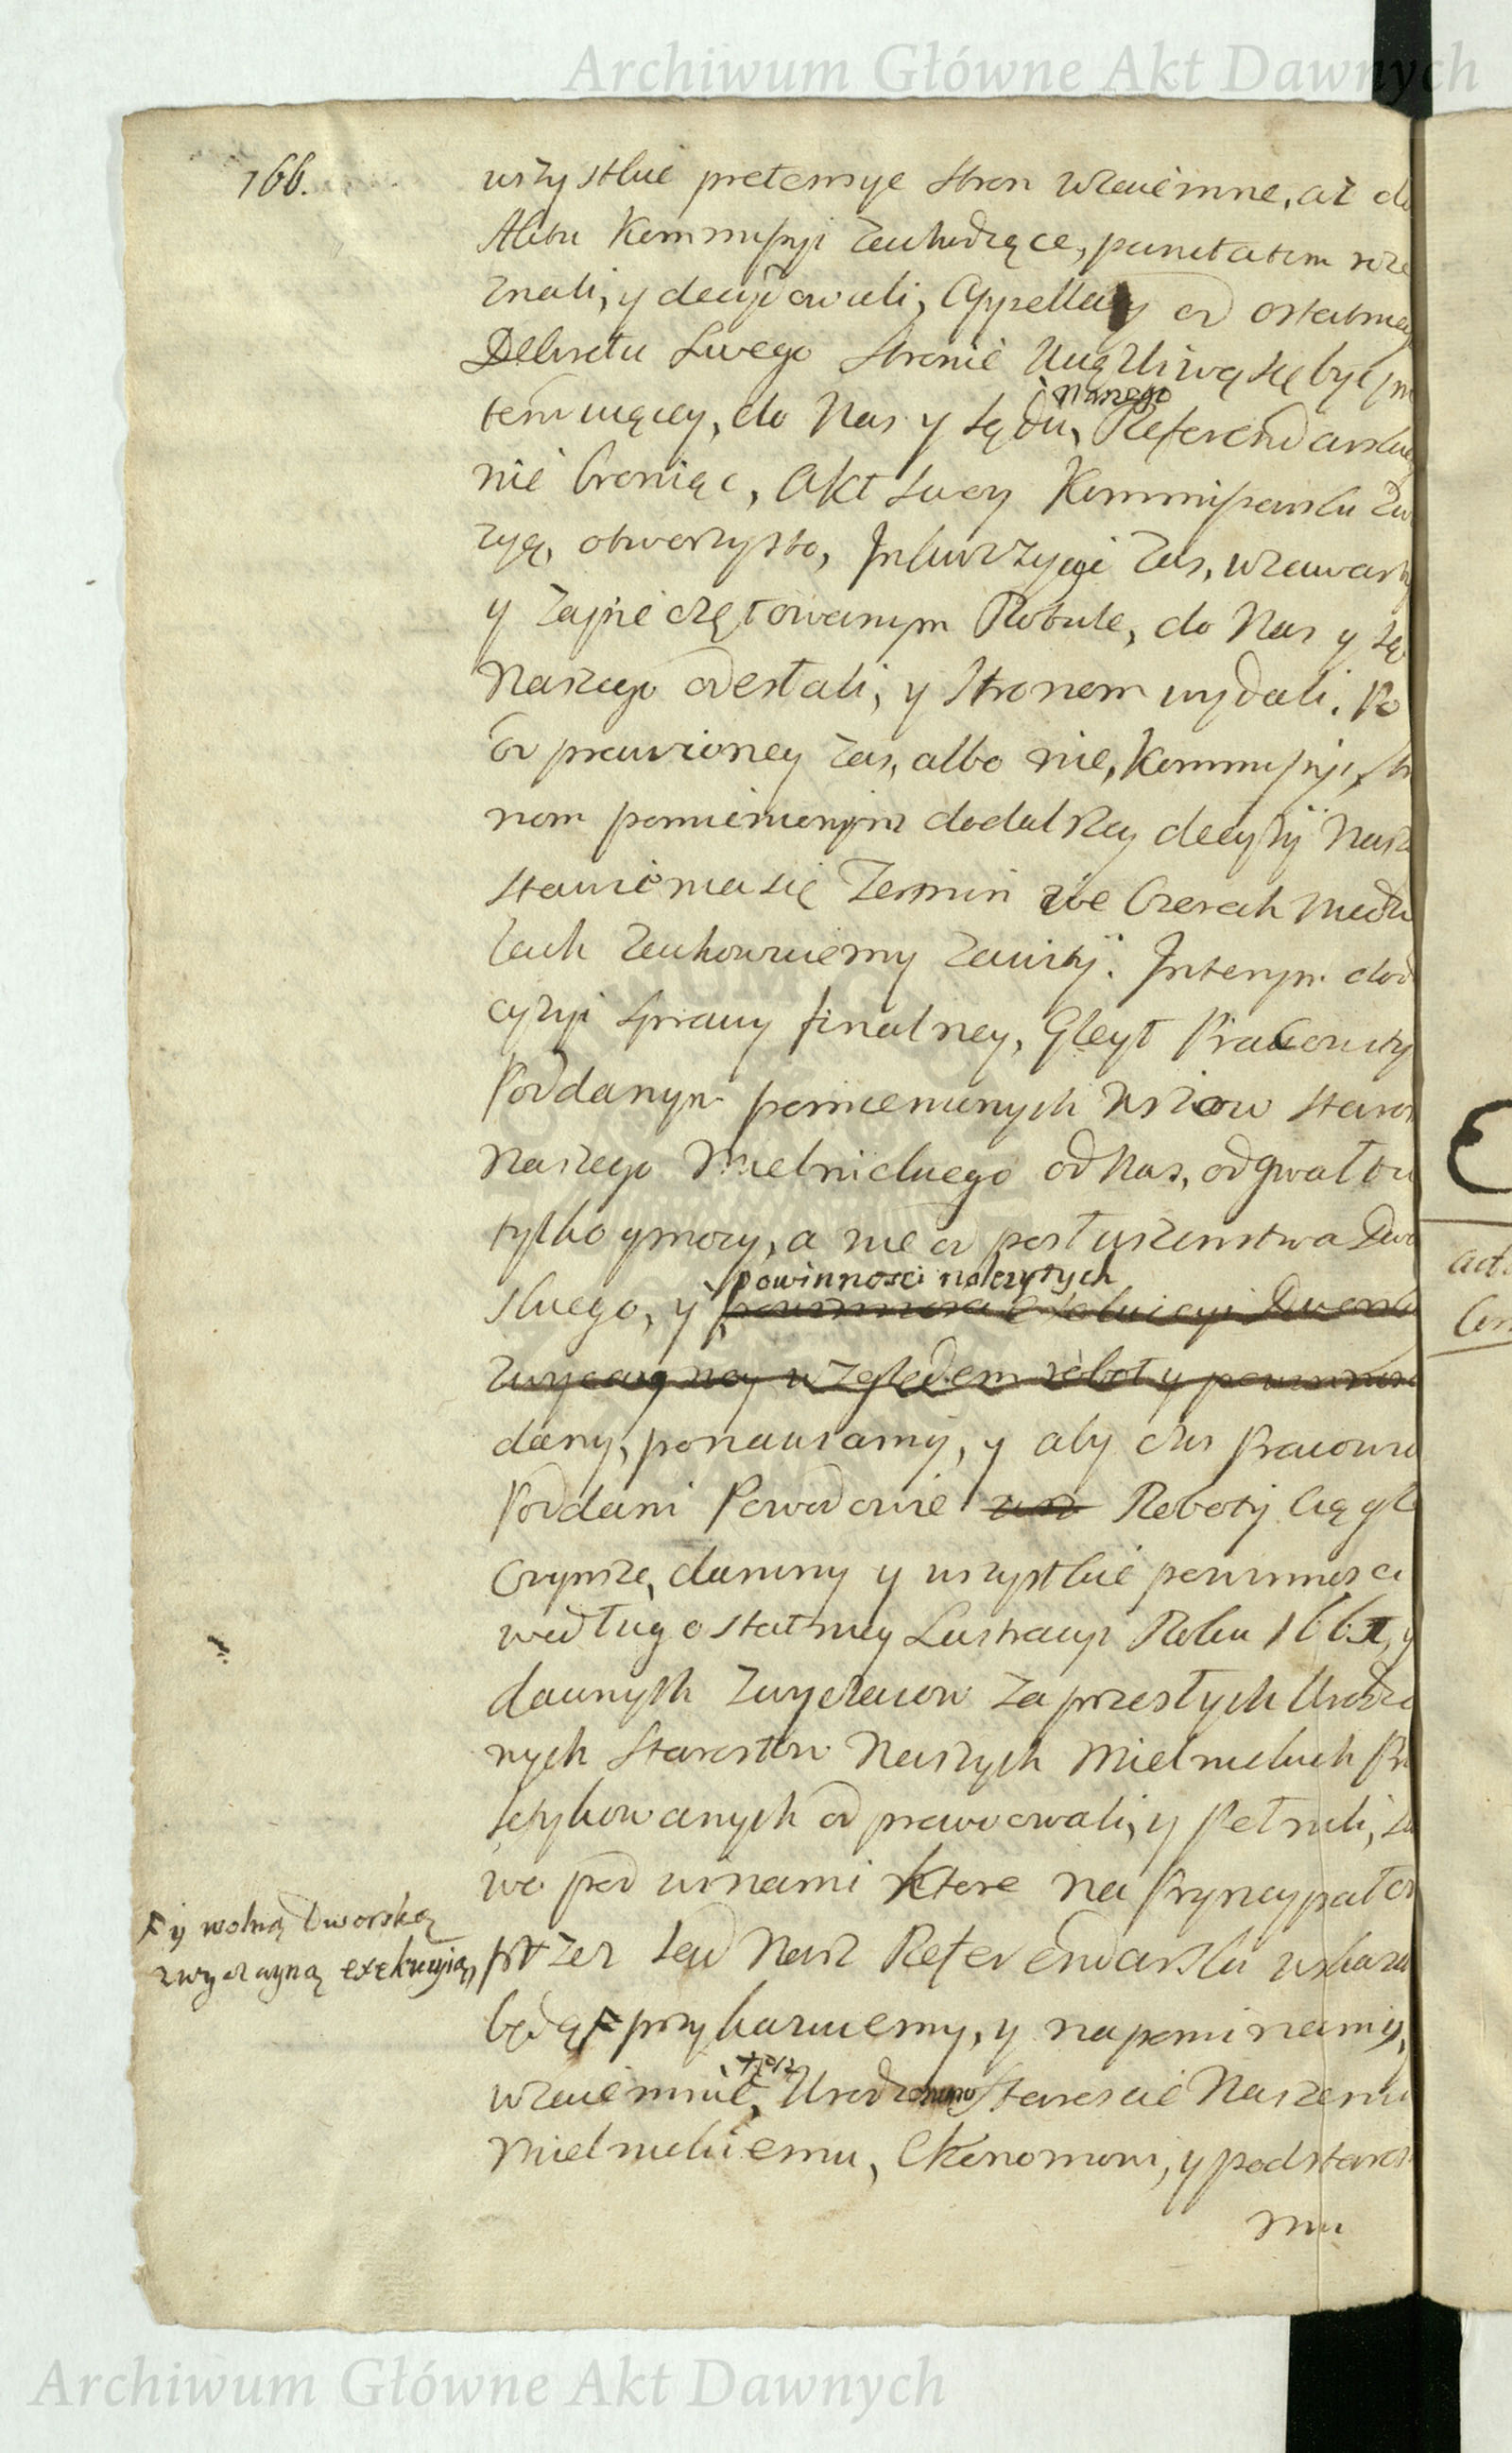 Archiwum Główne Akt Dawnych
166.
wszystkie pretensye stron wzaiemne, aż do
Aktu Kommissyi zachodzące, punctatim roze
znali, y decydowali, Appellacyy od ostatnieg
Dekretu swego stronie Uciążliwą się być pre
tenduiącey, do Nas y Sądu Naszego Referendarskie
nie broniąc, Akt swoy Kommissarski
otworzysto, Inkwizycyi zas, w zawarty
y zapieczętowanym Rotule, do Nas y Są
Naszego odesłali, y stronom wydali. Po
odprawioney zas, albo nie, Kommissyi, stro
nom pomienionym do dalszey decyzyi Nasz
stawienia się Termin we czterech Niedzie
lach zachowuiemy zawity. Interym do de
cyzyi sprawy finalney, Gleyt Pracowity
Poddanym pomienionych wsiow Staros
Naszego Mielnickiego od Nas, od gwałtu
tylko y mocy, a nie od posłuszenstwa Dwo
skiego, y powinnosci nalezytych
zwyczayney względem roboty powinnos
dany, ponawiamy, y aby ciz Pracowi
Poddani Powodowie Roboty Ciągłe
Czynsze, daniny y wszystkie powinnosci
według ostatniey Lustracyi Roku 166
dawnych zwyczaiow za przeszłych Urodzo
nych Starostow Naszych Mielnickich Pra
ktykowanych odprawowali, y Pełnili,
pod winami ktore na Pryncypałow
przez Sąd Nasz Referendarski wskaza
będą F przykazuiemy, y napominamy,
F y wolną Dworską
zwyczayną exekucyią,
wzaiemnie też Urodzonemu Staroscie Naszemu
Mielnickiemu, Ekonomowi, y podstaros
mu
Archiwum Główne Akt Dawnych